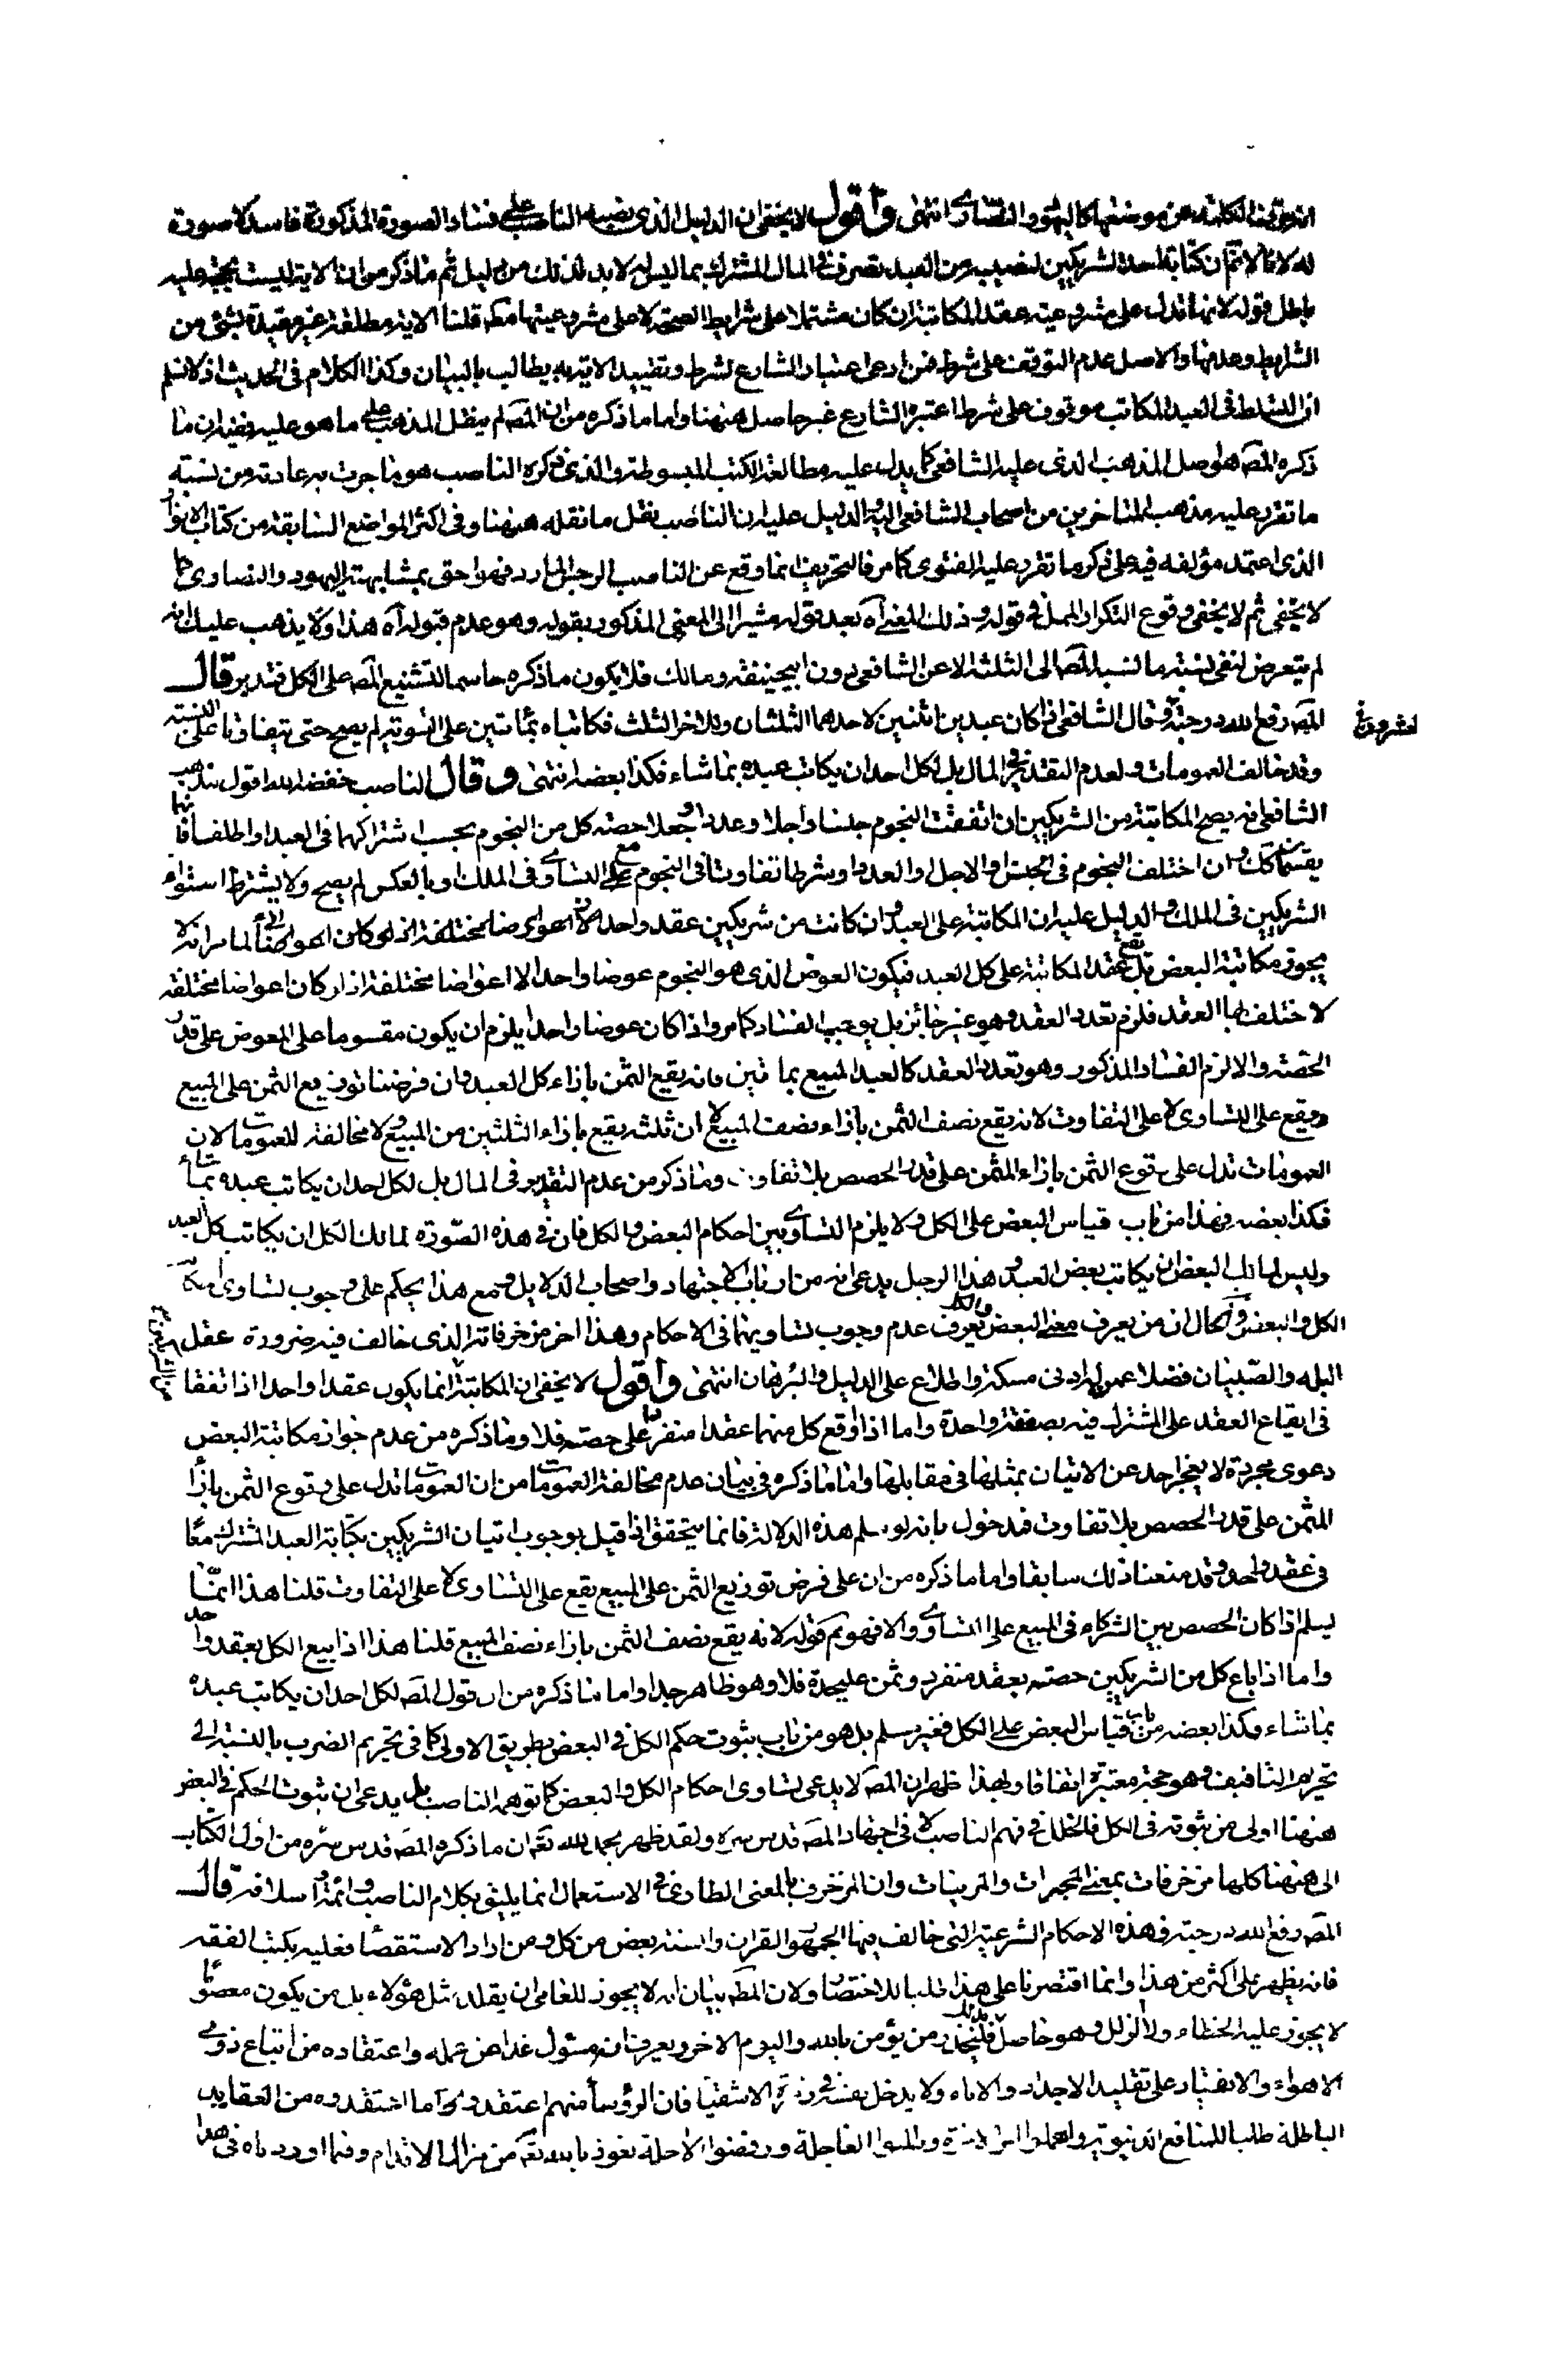 الكلمة عن موضعها كاليهود والنصارى انتهى واقول لا يخفى ان الدليل الذى نصبه الناصب على فساد الصورة المذكورة فاسد لا صورة
له لانا لا نم ان كتابة احد الشريكين لنصيبه من العبد تصرف فى المال المشترك بما ليس له لا بد لذلك من دليل ثم ما ذكره من ان الاية ليست بحجة عليه
باطل قوله لانها تدل على مشروعية عقد المكاتبة ان كان مشتملا على شرايط الصحة لا على مشروعيتها مطـ قلنا الاية مطلقة غير مقيدة بشئ من
الشرايط وعدمها والاصل عدم التوقف على شرط فمن ادعى اعتبار الشارع لشرط وتقييد الاية به يطالب بالبيان وكذا الكلام فى الحديث اذ لا نسلم
ان التسلط فى العبد المكاتب موقوف على شرط اعتبره الشارع غير حاصل هيهنا واما ما ذكره من ان المص لم ينقل المذهب على ما هو عليه ففيه ان ما
ذكره المص هو اصل المذهب الذى عليه الشافعى كما يدل عليه مطالعة الكتب المبسوطة والذى ذكره الناصب هو ما جرت به عادته من نسبة
ما تقرر عليه مذهب المتاخرين من اصحاب الشافعى اليه والدليل عليه ان الناصب نقل ما نقله هيهنا وفى اكثر المواضع السابقة من كتاب الانوار
الذى اعتمد مؤلفه فيه على ذكر ما تقرر عليه الفتوى كما مر فالتحريف انما وقع عن الناصب الرجل المارد فهو احق بمشابهة اليهود والنصارى كما
لا يخفى ثم لا يخفى وقوع التكرار الممل فى قوله وذلك المعنى آه بعد قوله مشيرا الى المعنى المذكور بقوله وهو عدم قبوله آه هذا ولا يذهب عليك انه
لم يتعرض لنفى نسبة ما نسبه المص الى الثلثة الا عن الشافعى دون ابيحنيفة ومالك فلا يكون ما ذكره حاسما لتشنيع المص على الكل فتدبر قال
المص رفع الله درجته وقال الشافعى اذا كان عبد بين اثنين لاحدهما الثلثان وللاخر الثلث فكاتباه بمائتين على السوية لم يصح حتى يتفاوتا على النسبة
وقد خالف العمومات ولعدم التقدير فى المال بل لكل احد ان يكاتب عبده بما شاء فكذا بعضه انتهى وقال الناصب خفضه الله اقول مذهب
الشافعى انه يصح المكاتبة من الشريكين ان اتفقت النجوم جنسا واجلا وعددا وجعلا حصة كل من النجوم بحسب اشتراكهما فى العبد او اطلقا فانها
يقسم كك وان اختلف النجوم فى الجنس او الاجل او العدد او شرطا تفاوتا فى النجوم مع التساوى فى الملك او بالعكس لم يصح ولا يشترط استواء
الشريكين فى الملك والدليل عليه ان المكاتبة على العبد وان كانت من شريكين عقد واحد لا اعواضا مختلفة اذ لو كان اعواضا لما مر انه لا
يجوز مكاتبة البعض بل يقع عقد المكاتبة على كل العبد فيكون العوض الذى هو النجوم عوضا واحدا لا اعواضا مختلفة اذ لو كان اعواضا مختلفة
لاختلف بها العقد فلزم تعدد العقد وهو غير جائز بل يوجب الفساد كما مر واذا كان عوضا واحدا يلزم ان يكون مقسوما على المعوض على قدر
الحصة والا لزم الفساد المذكور وهو تعدد العقد كالعبد المبيع بمائتين فانه يقع الثمن بازاء كل العبد وان فرضنا توزيع الثمن على المبيع
يقع على التساوى لا على التفاوت لانه يقع نصف الثمن بازاء نصف المبيع لا ان ثلثه يقع بازاء الثلثين من المبيع ولا مخالفة للعمومات لان
العمومات تدل على وقوع الثمن بازاء المثمن على قدر الحصص بلا تفاوت وما ذكر من عدم التقدير فى المال بل لكل احد ان يكاتب عبده بما شاء
فكذا بعضه فهذا من باب قياس البعض على الكل ولا يلزم التساوى بين احكام البعض والكل فان فى هذه الصورة لمالك الكل ان يكاتب كل العبد
وليس لمالك البعض ان يكاتب بعض العبد وهذا الرجل يدعى انه من ارباب الاجتهاد واصحاب الدلايل ومع هذا يحكم على وجوب تساوى
الكل والبعض والحال ان من يعرف معنى البعض والكل يعرف عدم وجوب تساويهما فى الاحكام وهذا اخر مزخرفاته الذى خالف فيه ضرورة عقل
البله والصبيان فضلا عمن له ادنى مسكة واطلاع على الدليل والبرهان انتهى واقول لا يخفى ان المكاتبة انما يكون عقدا واحدا اذا اتفقا
فى ايقاع العقد على المشترك فيه بصفقة واحدة واما اذا اوقع كل منهما عقدا منفردا على حصته فلا وما ذكره من عدم جواز مكاتبة البعض
دعوى مجردة لا يعجز احد عن الاتيان بمثلها فى مقابلها واما ما ذكره فى بيان عدم مخالفة العمومات من ان العمومات تدل على وقوع الثمن بازاء
المثمن على قدر الحصص بلا تفاوت فمدخول بانه لو سلم هذه الدلالة فانما يتحقق اذا قيل بوجوب اتيان الشريكين بكتابة العبد المشترك معا
فى عقد واحد وقد منعنا ذلك سابقا واما ما ذكره من ان على فرض توزيع الثمن على المبيع يقع على التساوى لا على التفاوت قلنا هذا انما
يسلم اذا كان الحصص بين الشركاء فى المبيع على التساوى والا فهو مم قوله لانه يقع نصف الثمن بازاء نصف المبيع قلنا هذا اذا بيع الكل بعقد واحد
واما اذا باع كل من الشريكين حصته بعقد منفرد وثمن عليحدة فلا وهو ظاهر جدا واما ما ذكره من ان قول المص لكل احد ان يكاتب عبده
بما شاء فكذا بعضه من باب قياس البعض على الكل فغير مسلم بل هو من باب ثبوت حكم الكل فى البعض بطريق الاولى كما فى تحريم الضرب بالنسبة الى
تحريم التافيف وهو حجة معتبرة اتفاقا وبهذا ظهر ان المص لا يدعى تساوى احكام الكل والبعض كما توهمه الناصب بل يدعى ان ثبوت الحكم فى البعض
هيهنا اولى من ثبوته فى الكل فالخلل فى فهم الناصب لا فى اجتهاد المص قدس سره ولقد ظهر بحمد لله تعـ ان ما ذكره المص قدس سره من اول الكتاب
الى هيهنا كلها مزخرفات بمعنى المحبرات والمزينات وان المزخرف بالمعنى الطارى فى الاستعمال انما يليق بكلام الناصب وائمته واسلافه قال
المص رفع الله درجته فهذه الاحكام الشرعية التى خالف فيها الجمهور القران والسنة بعض من كل ومن اراد الاستقصاء فعليه بكتب الفقه
فانه يظهر على اكثر من هذا وانما اقتصرنا على هذا طلبا للاختصار ولان المط بيان انه لا يجوز للعامى ان يقلد مثل هؤلاء بل من يكون معصوما
لا يجوز عليه الخطاء ولا الزلل وهو حاصل بذلك فليحذر من يؤمن بالله واليوم الاخر ويعرف انه مسئول غدا عن عمله واعتقاده من اتباع ذوى
الاهواء والانقياد على تقليد الاجداد والاباء ولا يدخل نفسه فى زمرة الاشقياء فان الرؤساء منهم اعتقدوا ما اعتقدوه من العقايد
الباطلة طلبا للمنافع الدنيوية واهملوا الاخرة وطلبوا العاجلة ورفضوا الاجلة نعوذ بالله تعـ من مزال الاقدام وفيما اوردناه فى هذا